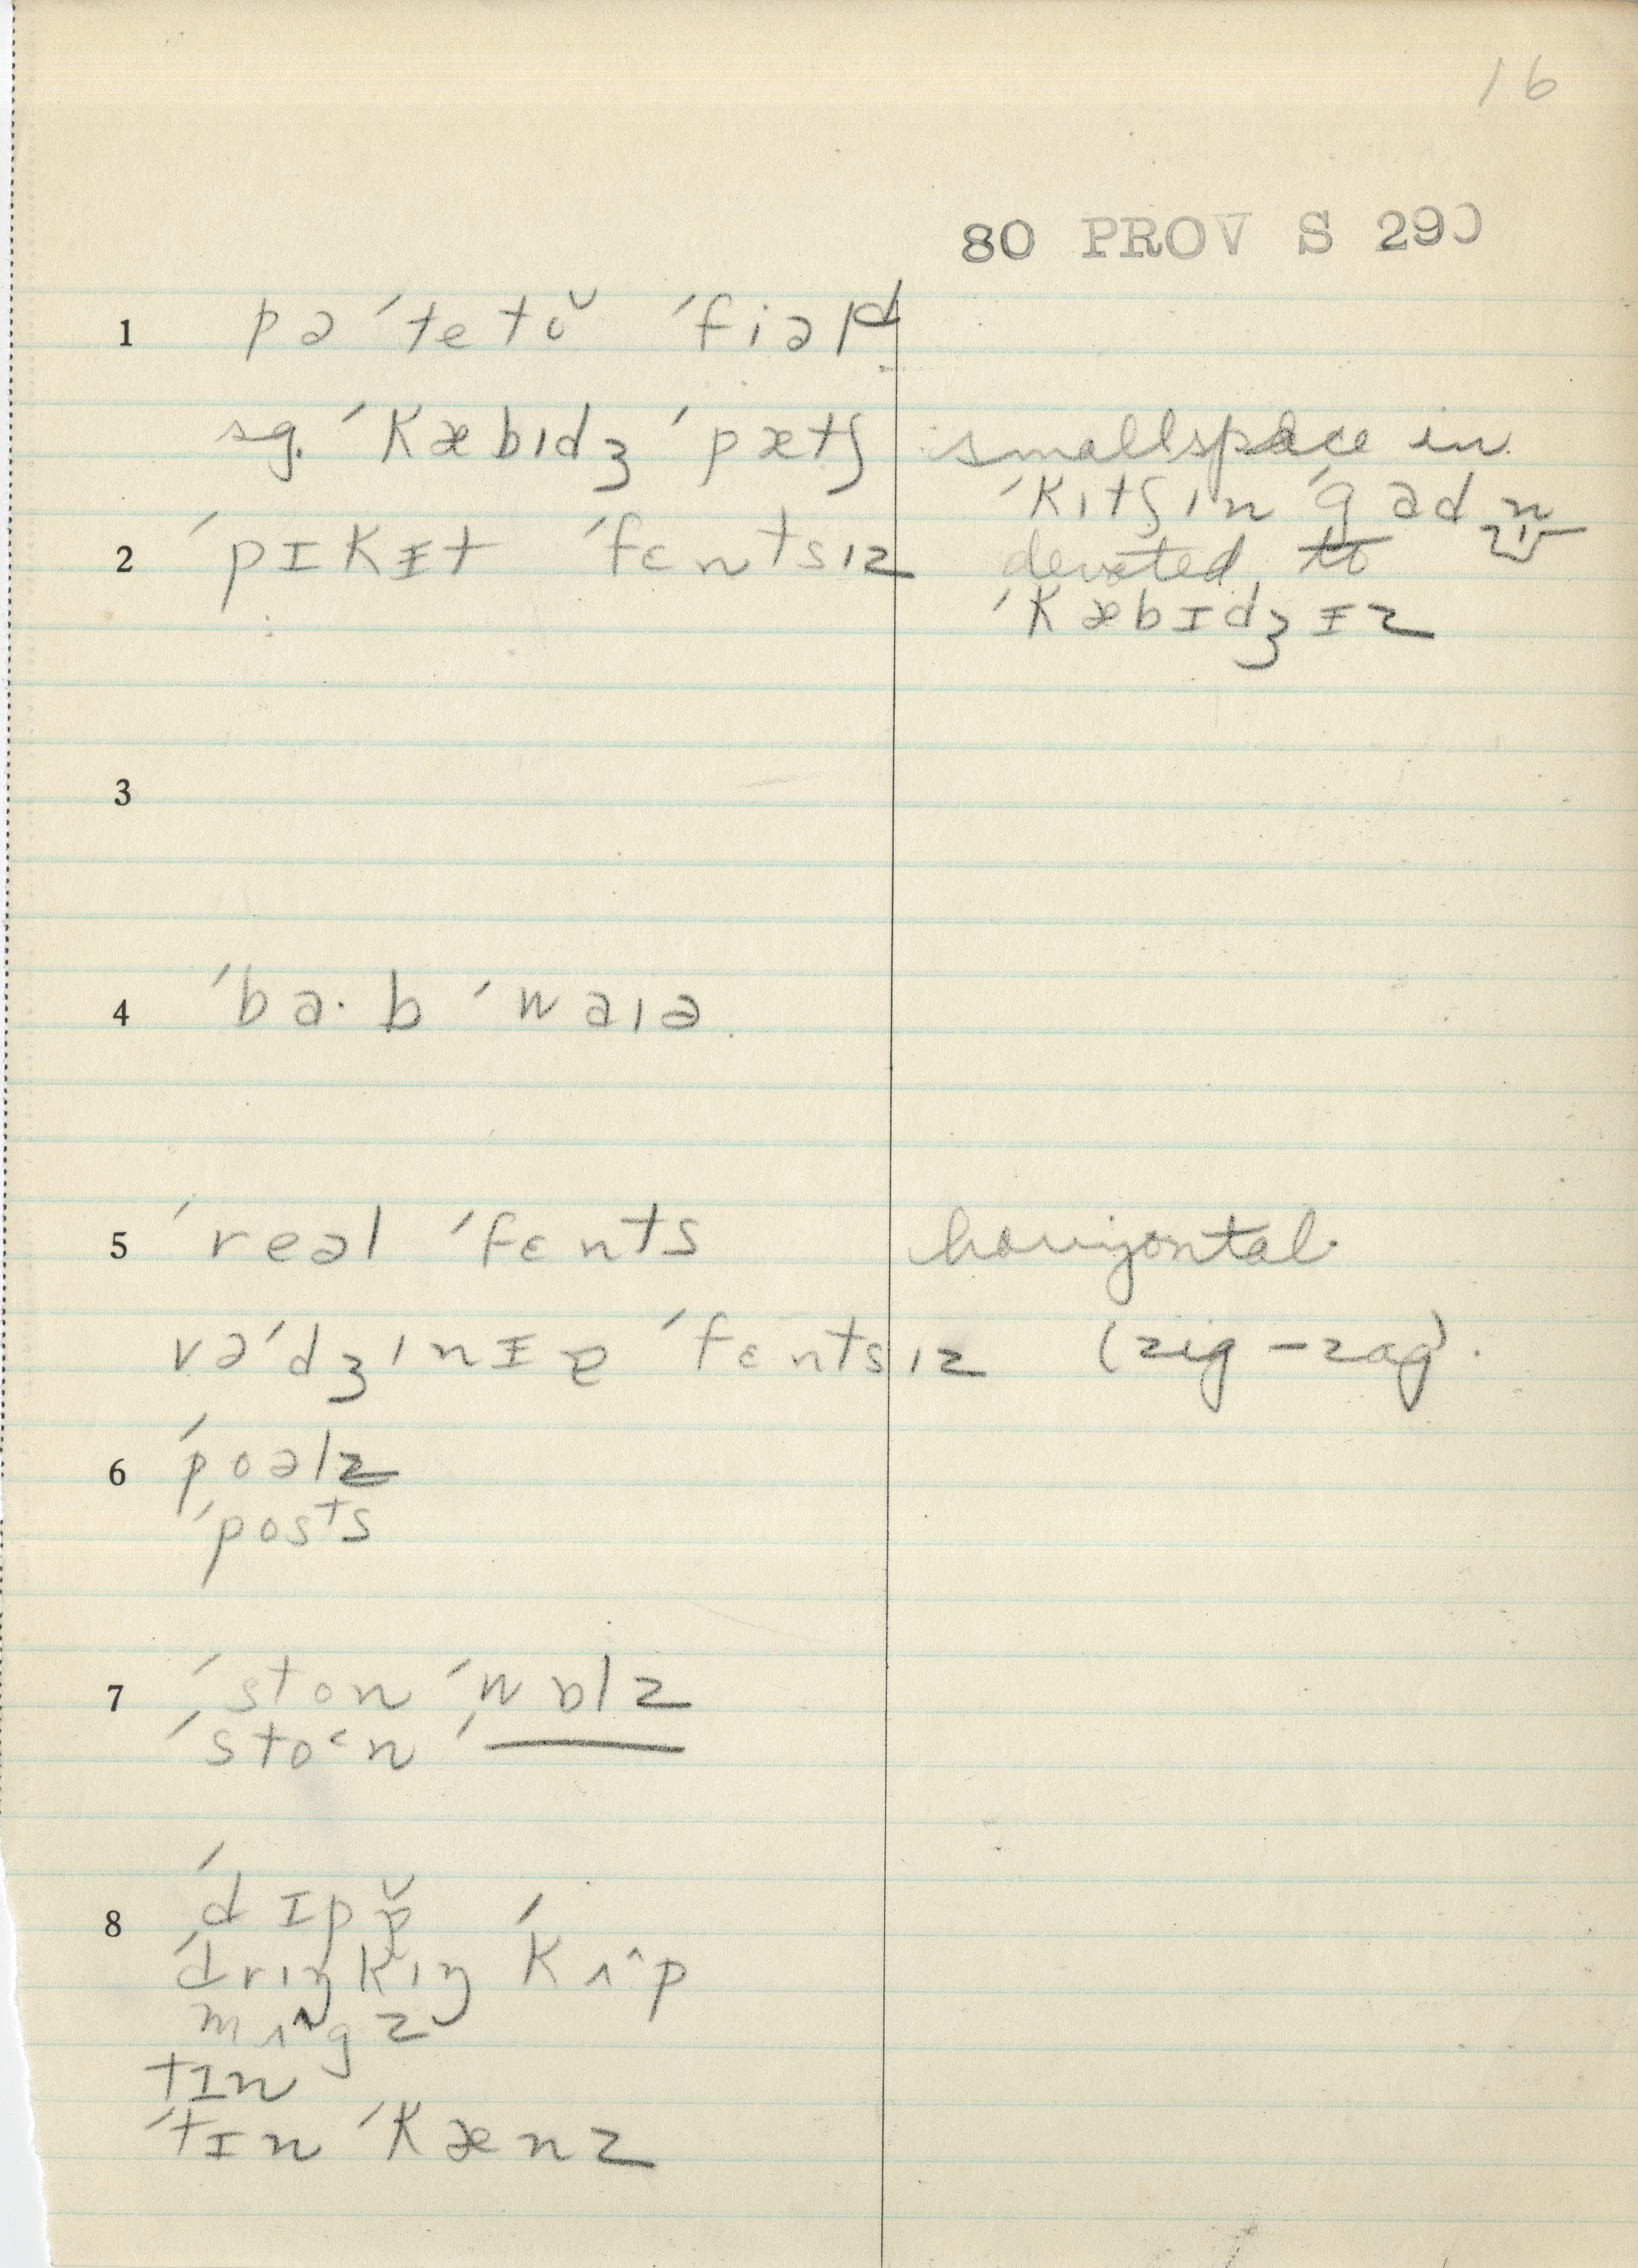 16
80 PROV S 290
1 pə´tetə̆ ´fiəld
sg. ´kæbɪdʒ ´pætʃ smallspace in
´kɪtʃɪn ´gadn
2 ´pɪkɪt ´fɛntsɪz devoted to
´kæbɪdʒɪz
3
4 ´ba·b ´waɪə
5 ´reəl ´fɛnts horizontal
və´dʒɪnɪə ´fɛntsɪz (zig-zag).
6 ´poəlz
´posts
7 ´ston ´wɒlz
´stoᵋn ´——
8 ´dɪpə̆
´drɪŋkɪŋ ´kʌ^p
mʌ^gz
tɪn
´tɪn ´kænz